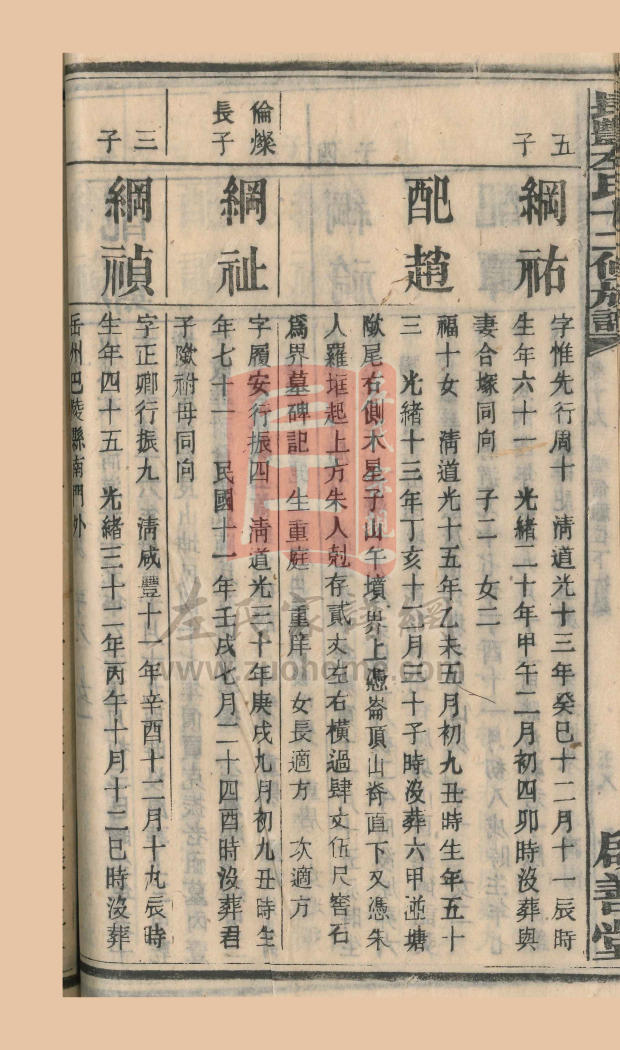 長豐左氏十二修族譜
啟善堂
五子
綱祐
字惟先行周十　清道光十三年癸巳十二月十一辰時
生年六十一　光緒二十年甲午二月初四卯時沒葬與
妻合塚同向　子二　女二
配趙
福十女　清道光十五年乙未五月初九丑時生年五十
三　光緒十三年丁亥十二月三十子時沒葬六甲逰塘
墩尾右側木星子山午墳界上憑崙頂山脊直下又憑朱
人羅堆起上方朱人尅存貳丈左右橫過肆丈伍尺窖石
爲界墓碑記　生重庭　重庠　女長適方　次適方
倫燦長子
綱祉
字履安行振四　清道光三十年庚戌九月初九丑時生
年七十一　民國十一年壬戌七月二十四酉時沒葬君
子墩祔母同向
三子
綱禎
字正卿行振九　清咸豐十一年辛酉十二月十九辰時
生年四十五　光緒三十二年丙午十月十二巳時沒葬
岳州巴陵縣南門外
左氏家譜網
www.zuohome.com